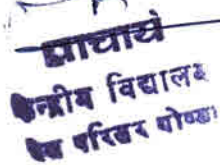 प्राचार्य
केन्द्रीय विद्यालय
परिसर